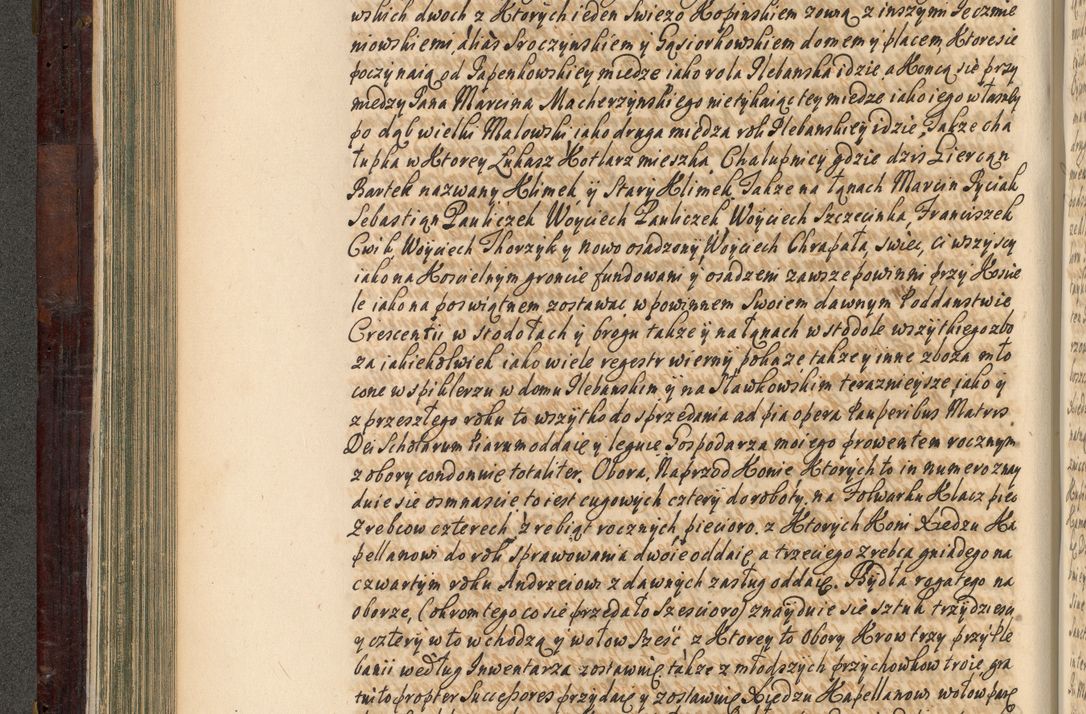 wskich dwoch z Ktorych ieden Swiezo Kopinskiem zową z inszymi Ieczmie
niowskiemi alias Sroczynskiem y Gąsiorkowskiem domem y placem Ktore sie
poczynaią od Papenkowskiey miedze iako rola Plebanska idzie a Konczą się przy
miedzy Pana Marcina Macherzynskiego nietykaiąc tey miedze iako iego własney
po dąb wielki Malowski iako druga miedza roli Plebanskiey idzie, Takze cha
łupka w Ktorey Lukasz Kotlarz mieszka, Chalupnicy gdzie dzis Liercan
Bartek nazwany Klimek, y Stary Klimek, Takze na Łąnach Marcin Pyciak
Sebastian Pauliczek, Woyciech Pauliczek, Woyciech Szczecinka, Franciszek
Cwik, Woyciech Thorzyk y nowo osadzony Woyciech Chrapała swiec, ci wszyscy
iako na Koscielnym groncie fundowani y osadzeni zawsze powinni przy Koscie
le iako na poswiątnem zostawac w powinnem Swoiem dawnym Poddanstwie
Crescentii w stodołach y brogu takze y na łąnach w stodole wszytkiego zbo
za iakiekolwiek iako wiele regestr wierny pokaze takze y inne zboza mło
cone w spiklerzu w domu Plebanskim y na Sławkowskim terazniejsze iako y
z przeszłego roku to wszytko do sprzedania ad pia opera Pauperibus Matris
Dei Scholarum Piarum oddaię y leguię Gospodarza moiego prowentem rocznym
z obory condonuię totaliter. Obora. Naprzod Konie Ktorych to in numero znay
duie sie osmnascie, to iest cugowych cztery do roboty, na Folwarku Klacz piec
zrebcow czterech, zrebiąt rocznych piecioro. z Ktorych Koni Xiedzu Ka
pellanowi do rąk sprawowania dwoie oddaię a trzeciego zrebca gniadego na
czwartym roku Andrzeiowi z dawnych zasług oddaię. Bydła rogatego na
oborze, (okrom tego co sie przedało Szescioro) znayduie sie sztuk trzydziesci
y cztery w to wchodzą y wołow Szesć z Ktorey to Obory Krow trzy przy Ple
banii według Inwentarza zostawuię takze z młodszych przychowkow troie gra
tuito propter Successores przydaię y zostawuię Xiedzu Kapellanowi wołow parę